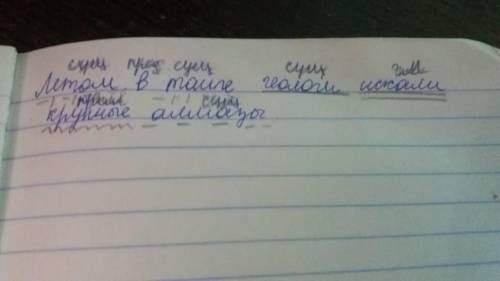 сущ. пред. сущ. сущ. глаг.
Летом в тайге геологи искали
прилаг. сущ.
крупные алмазы.